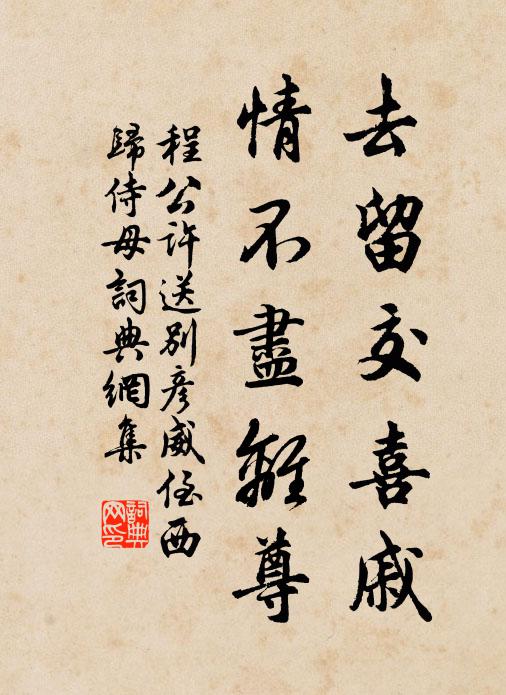 去留交喜戚
情不盡離尊
程公許送别彦威侄西
歸侍母詞典網集
詞典
网印